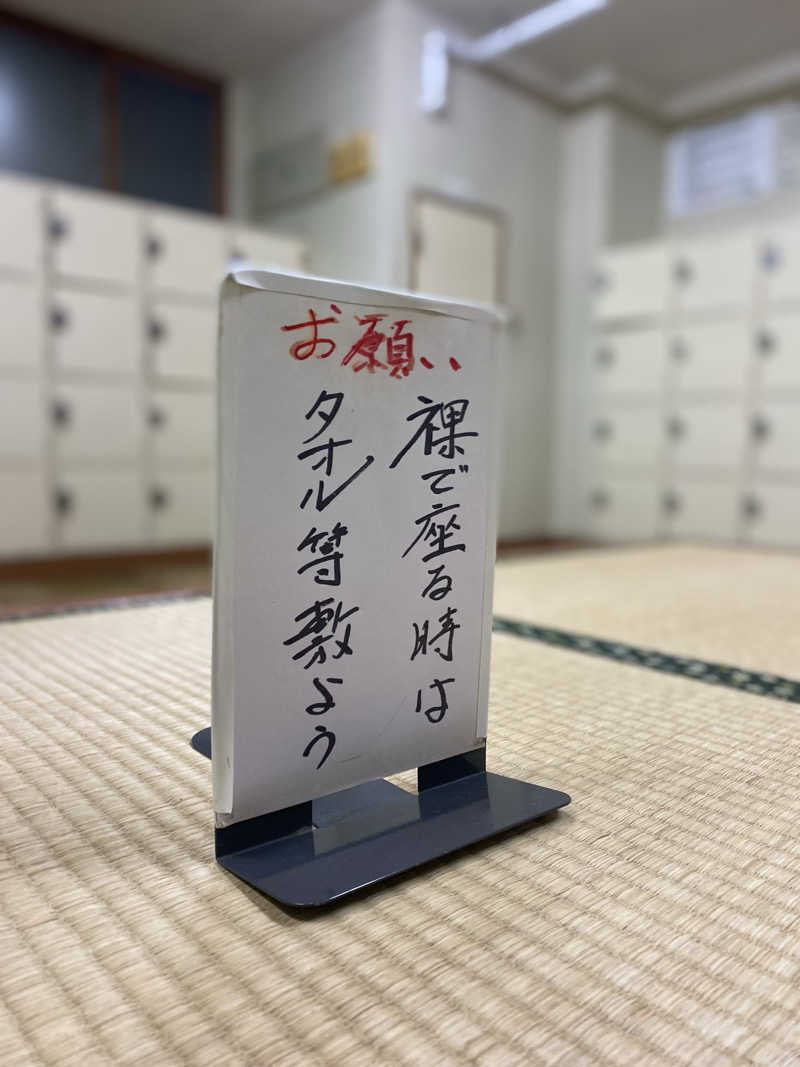 お願い
裸で座る時は
タオル等敷よう